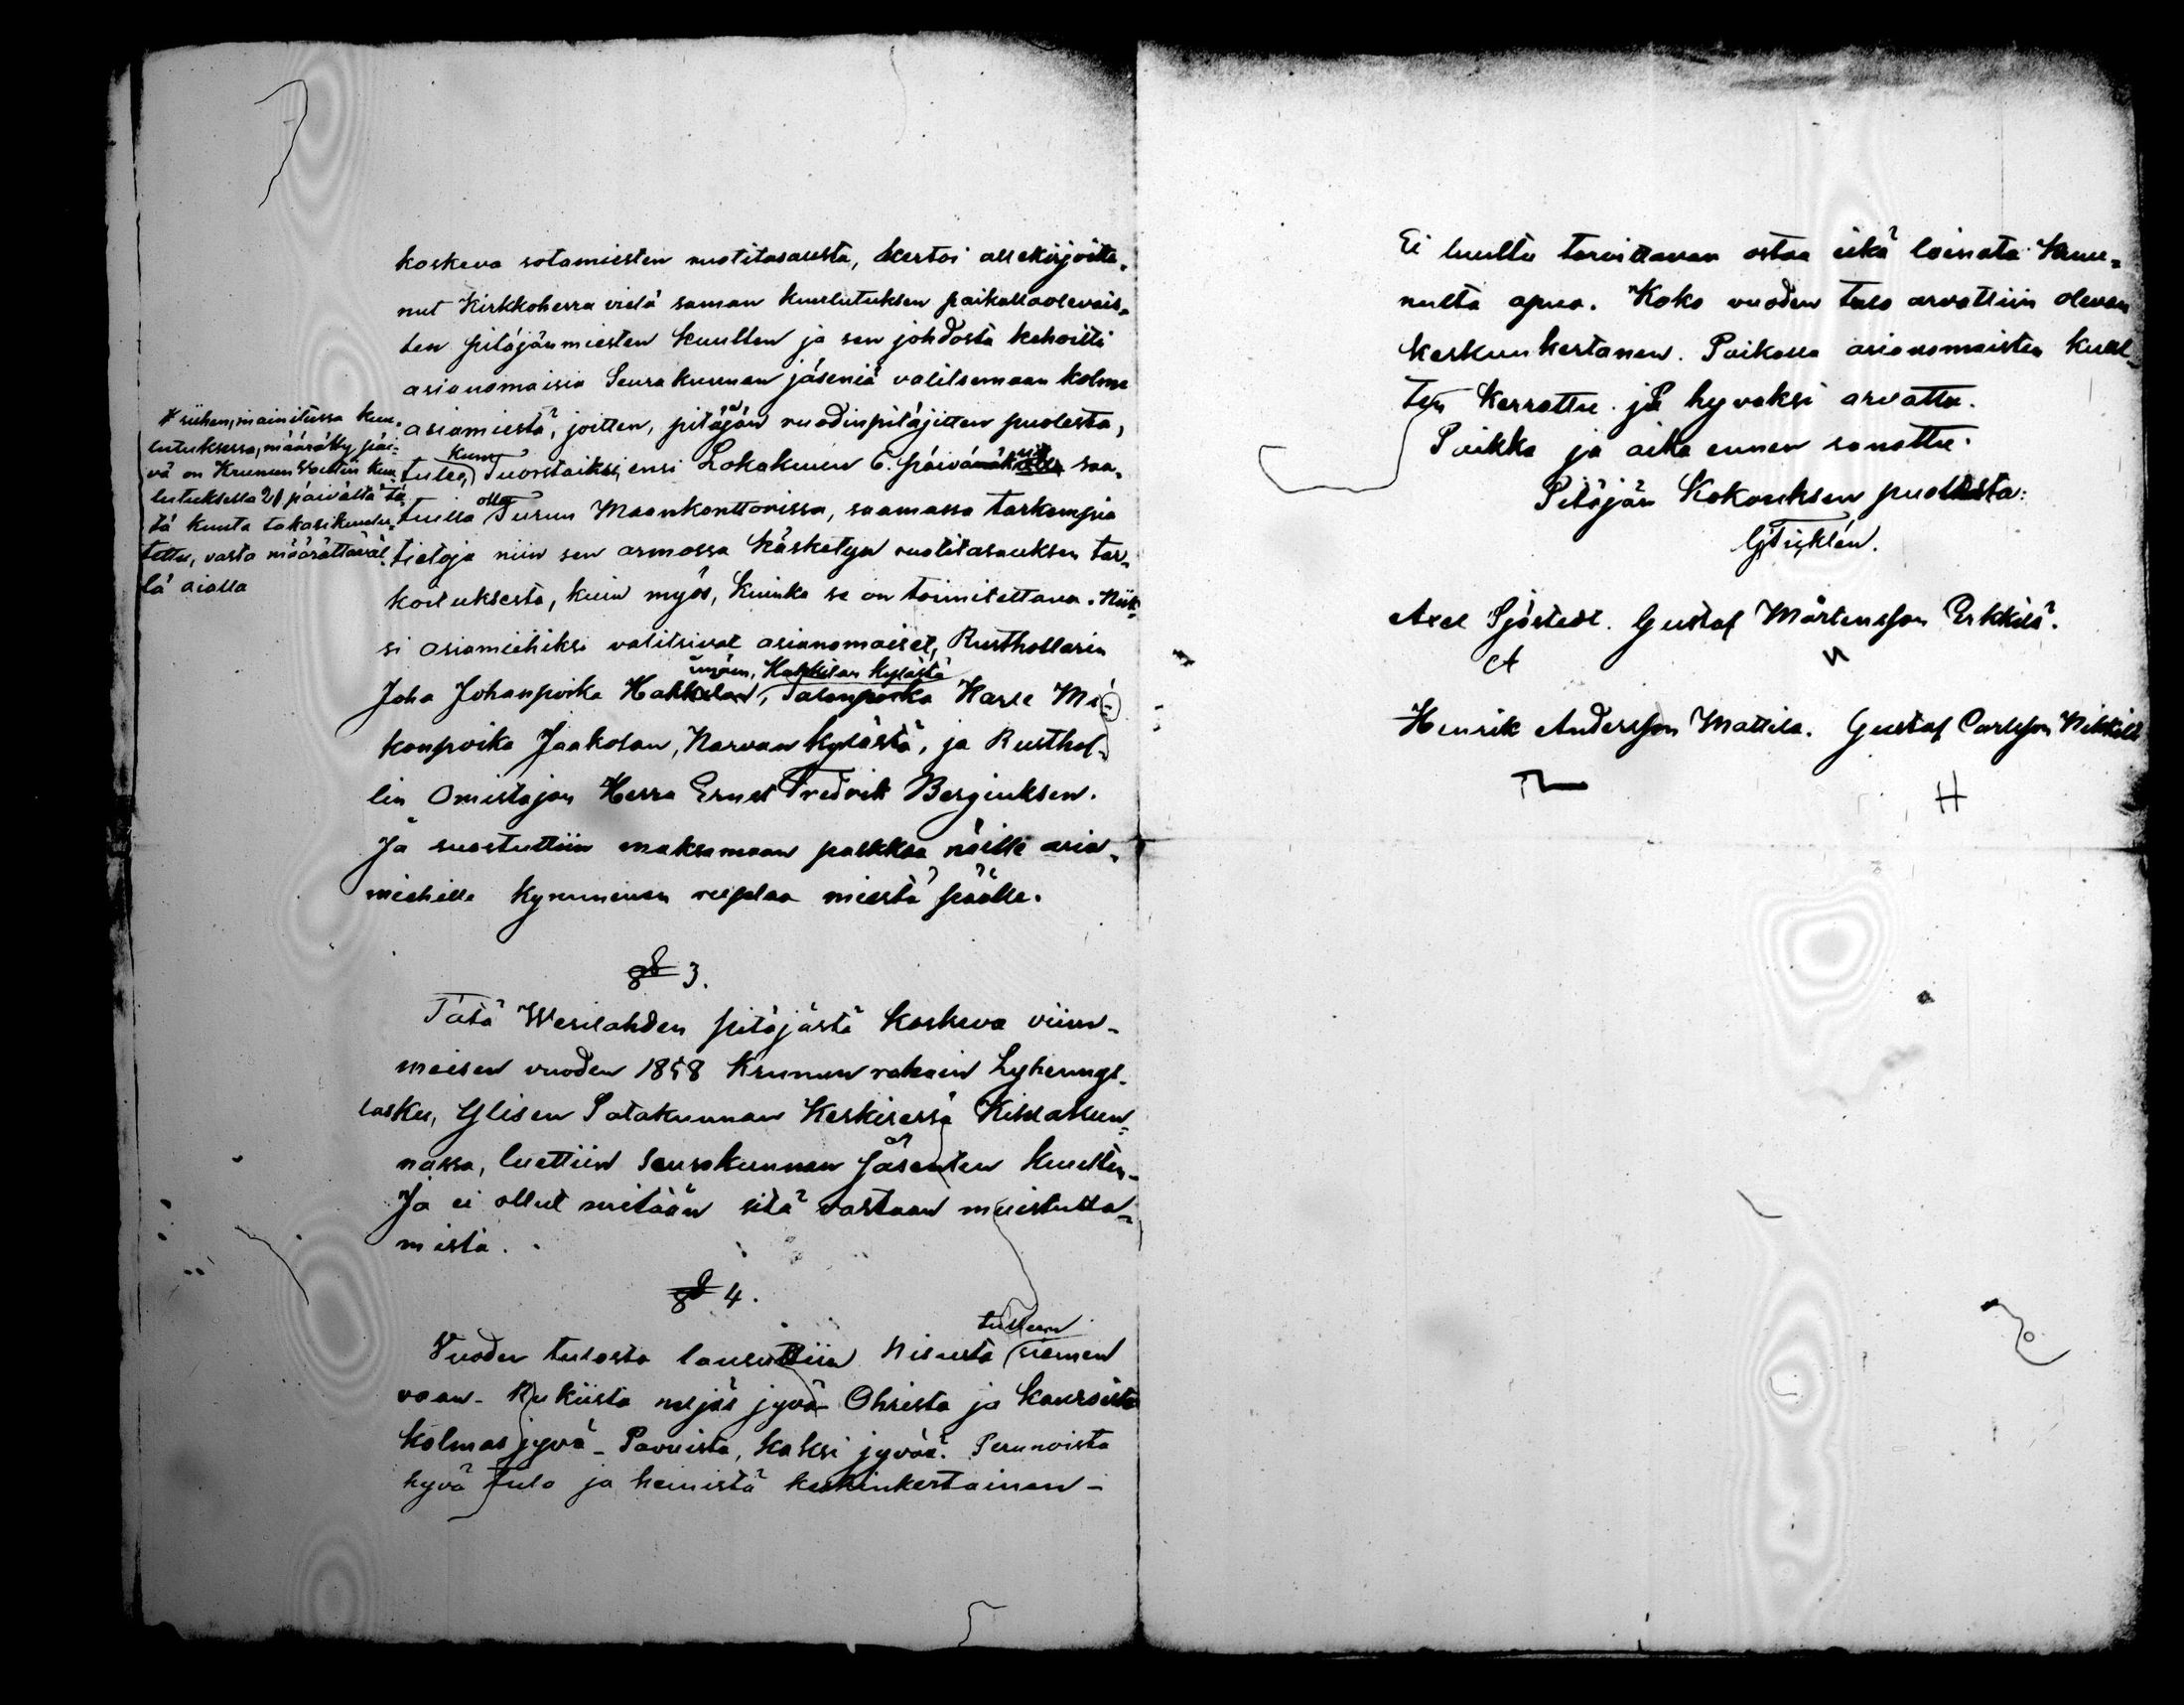 koskeva sotamiesten ruotitasausta, kertoi allekirjoitta,
nut Kirkkoherra vielä saman kuulutuksen paikallaolevais,
ten pitäjänmiesten kuullen ja sen johdosta kehoitti
asianomaisia Seurakunnan jäseniä valitsemaan kolme
asiamiestä, joitten, pitäjän ruodinpitäjitten puolesta,
kuin
tulee, Tuorstaiksi, ensi Lokakuun 6. päivänä saa,
olla
tuilla Turun Maankonttorissa, saamassa tarkempia
tietoja niin sen armossa käsketyn ruotitasauksen tar,
koituksesta, kuin myös, kuinka se on toimitettava. Niik,
si asiamiehiksi valitsivat asianomaiset, Rusthollarin
Hakkilan kylästä
Joha Johanpoika, Talonpoika Karle Mi-
konpoika Jaakolan, Narvan kylästä, ja Rusthol-
lin Omistajan Herra Ernst Fredrik Bergiuksen.
Ja suostuttiin maksamaan palkkaa näille asia,
miehille kymmenen ruplaa miestä päälle.
# siihen, mainitussa kuu,
lutuksessa, määrätty päi-
vä on Krunun Woutin kuu,
lutuksella 21 päivältä tä,
tä kuuta takasikuulu,
tettu, vasta määrättäväl,
lä aialla
§ 3.
Tätä Wesilahden pitäjästä koskeva viim-
meisen vuoden 1858 Krunun rahain Lyhennys-
lasku, Ylisen Satakunnan Keskisessä Kihlakun,
nassa, luettiin Seurakunnan jäsenten kuullen-
Ja ei ollut mitään sitä vastaan muistutta-
mista.
§ 4.
tulleen
Vuoden tulosta lausuttiin Nisusta siemen
vaan- Rukiista neljäs jyvä- Ohrista ja kauroista
kolmas jyvä- Pavuista, kaksi jyvää. Perunoista
hyvä tulo ja heinistä keskinkertainen-
Ei luultu tarvittavan ostaa eikä lainata Kruu,
nulta apua. Koko vuoden tulo arvattiin olevan
keskinkertanen. Paikalla asianomaisten kuul-
ten kerrottu ja hyväksi arvattu.
Paikka ja aika ennen sanottu.
Pitäjän Kokouksen puolesta:
Axel Sjöstedt. Gustaf Mårtensson Erkkilä.
A
Henrik Andersson Mattila. Gustaf Carlsson Nikkilä
H